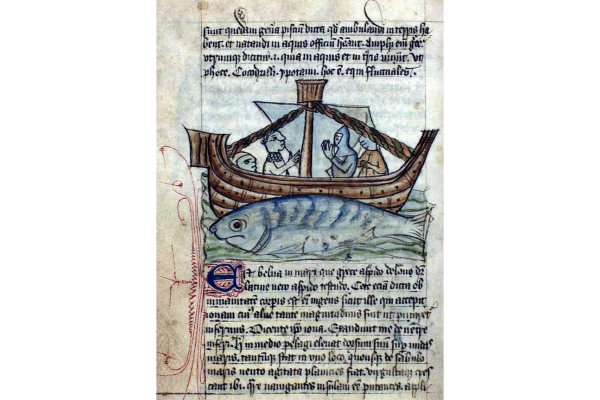 sunt quedam gen̄a pisciū dicta qd̄ ambulandi in terris ha
bent. et natandi in aquis officiū hn̄ant. Amphi em̄ grece
utrumque dicitur. i. quia in aquis et in tr̄is uiuūt. vt
phoce. Cocodrilli. ypotami. hoc ē. equi fluctuales.
Est belua in mari que grece aspido delone dr̄
latine uero aspido testudo. Cete eciā dicta ob
inmanitatē corporis est em̄ ingens sicut ille qui accepit
ionam cuiꝰ aluꝰ tante magnitudinis fuit ut putaret
infernus. Dicente ipō iona. Exaudiuit me de uentre
inferi. Hec in medio pelagi eleuat dorsum suū sup undas
maris. tantūque stat in uno loco. quousque de sabulo
maris uento agitata planicies fiat. virgultaque cres
cant ibi. Qr̄e nauigantes insulam eē putantes. appli